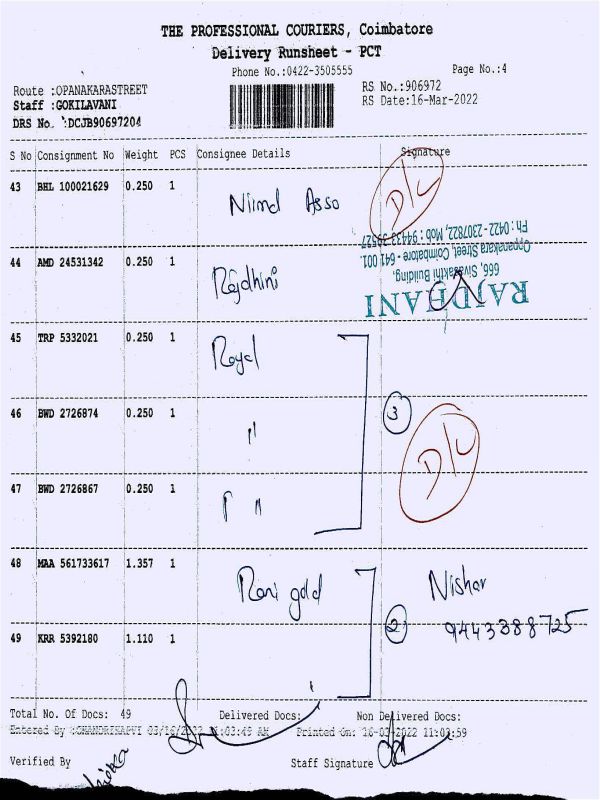 THE PROFESSIONAL COURIERS, Coimbatore
Delivery Runsheet - PCT
Phone No.:0422-3505555 Page No.:4
Route :OPANAKARASTREET RS No.:906972
Staff :GOKILAVANI RS Date:16-Mar-2022
DRS No. :DCJB90697204
S No Consignment No Weight PCS Consignee Details Signature
43 BHL 100021629 0.250 1 Nirmal Asso D/L
Ph : 0422-2307822, Mob : 94433-39527
Oppanakara Street, Coimbatore - 641 001.
666, Sivasakthi Building,
RAJDHANI
44 AMD 24531342 0.250 1 Rajdhini
45 TRP 5332021 0.250 1 Royal
46 BWD 2726874 0.250 1 " 3
47 BWD 2726867 0.250 1 " " D/L
48 MAA 561733617 1.357 1 Rani gold Nishar
2 9443388725
49 KRR 5392180 1.110 1
Total No. Of Docs: 49 Delivered Docs: Non Delivered Docs:
Entered By 03/16/2022 11:03:49 AM Printed On: 16-03-2022 11:03:59
Verified By Staff Signature